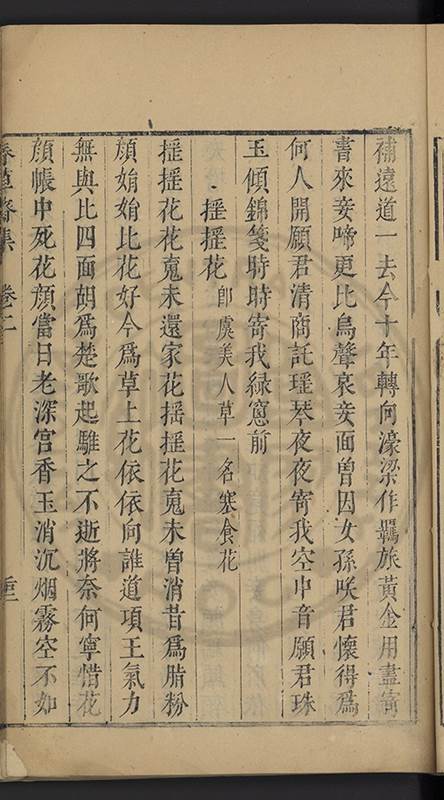 補遠道一去今十年轉向濠梁作羈旅黃金用盡寄
書來妾啼更比烏聲哀妾面曾因女孫咲君懷得爲
何人開願君清商託瑶琴夜夜寄我空中音願君珠
玉傾錦箋時時寄我綠窻前
揺揺花 卽虞美人草一名寒食花
揺揺花花䰟未還家花揺揺花䰟未曾消昔爲脂粉
顔娋娋比花好今爲草上花依依向誰道項王氣力
無與比四面胡爲楚歌起騅之不逝將奈何寧惜花
顔帳中死花顔當日老深宫香玉消沉烟霧空不如
春草齋集 卷二